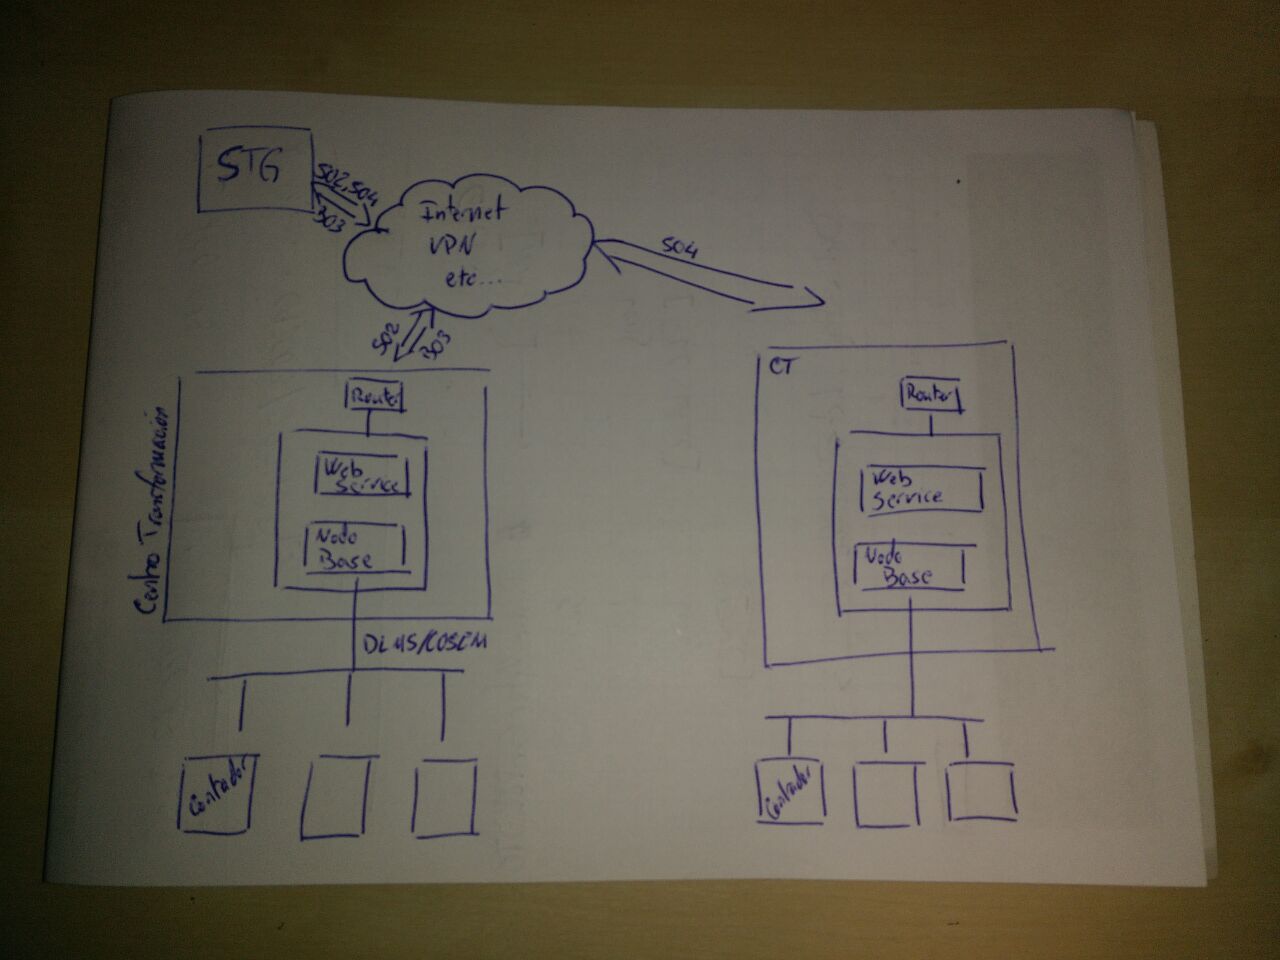 STG
S02, S04
S03
Internet
VPN
etc...
S04
S02
S03
Centro Transformación
Router
Web
Service
Nodo
Base
DLMS/COSEM
Contador
CT
Router
Web
Service
Nodo
Base
Contador